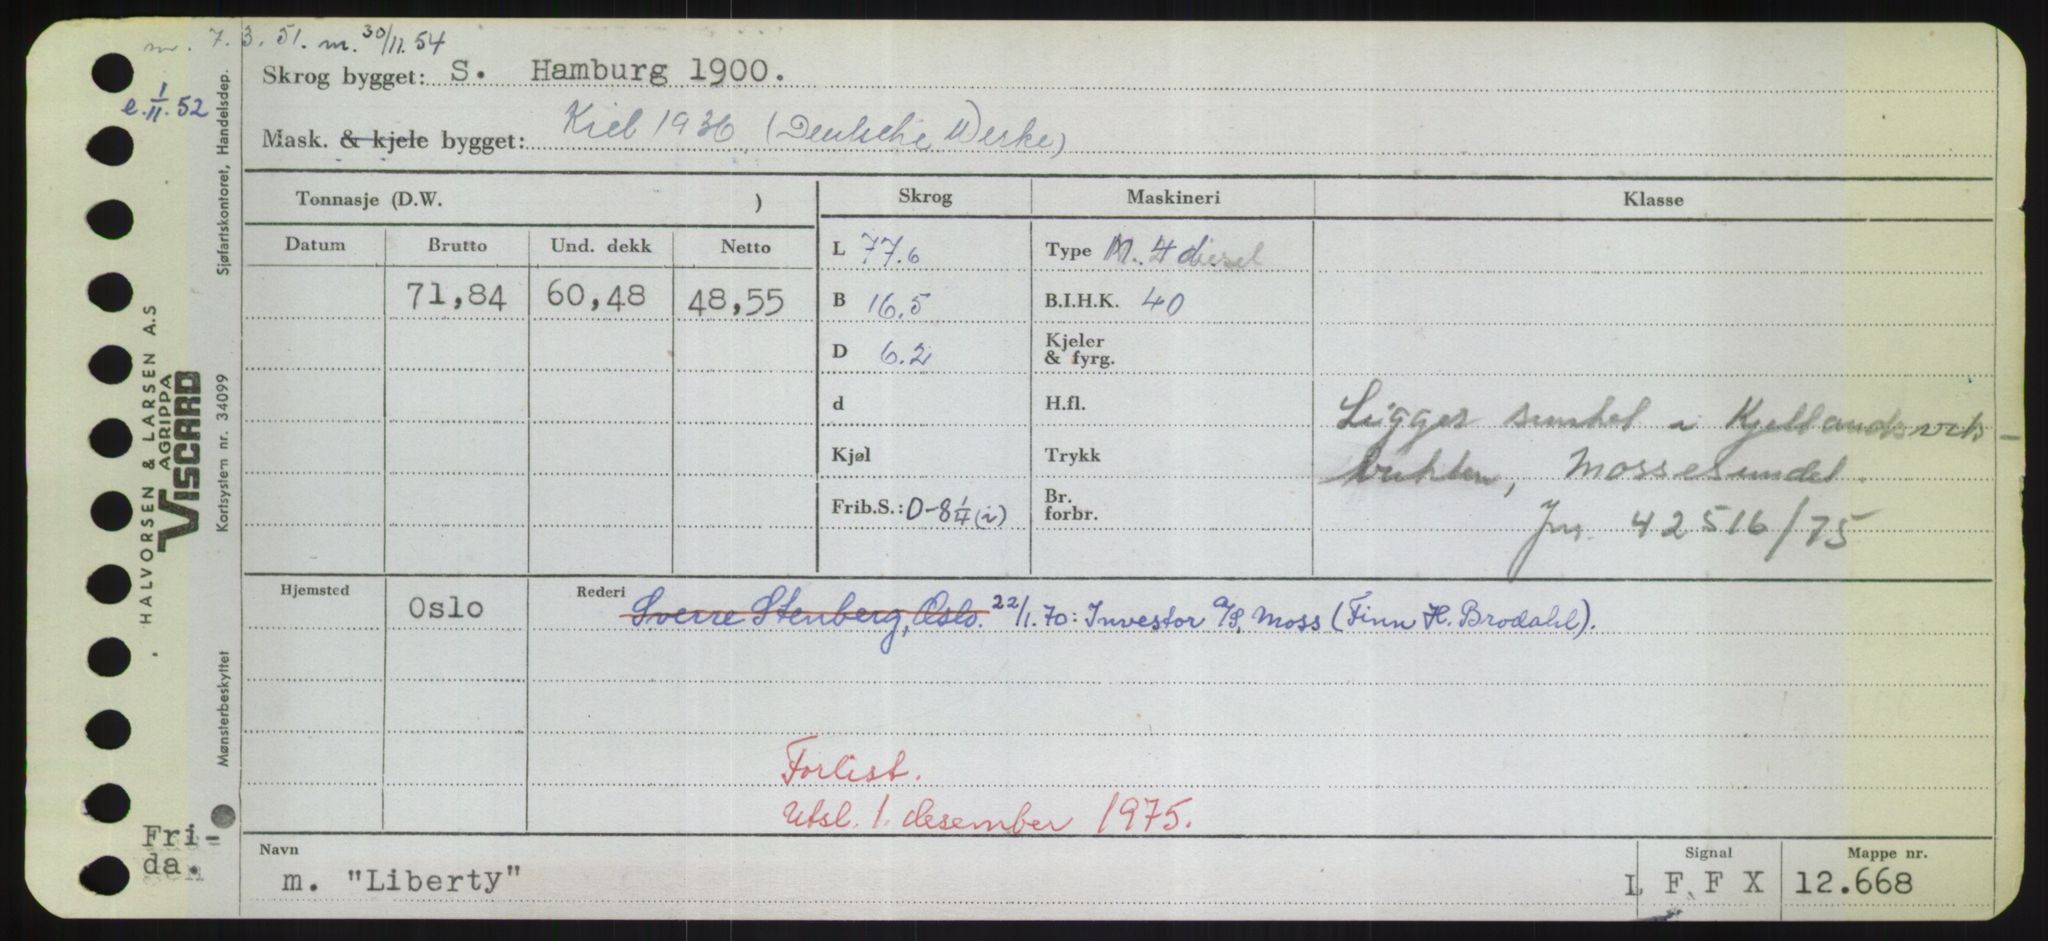 m. 7.3.51. m. 30/11.54
e. 1/11.52
Skrog bygget: S. Hamburg 1900.
Mask. & kjele bygget: Kiel 1936 (Deutsche Werke)
Tonnasje (D.W. )
Skrog
Maskineri
Klasse
Datum Brutto Und. dekk Netto
71,84 60,48 48,55
L 77.6
B 16,5
D 6.2
d
Kjøl
Frib.S.: 0-8 1/4 (i)
Type M. 4 diesel
B.I.H.K. 40
Kjeler
& fyrg.
H.fl.
Trykk
Br.
forbr.
Ligger sunket i Kjellandsvik-
bukten, Mossesundet.
Jnr. 42516/75
Hjemsted Oslo
Rederi Sverre Stenberg, Oslo. 22/1.70: Investor A/S, Moss (Finn H. Brodahl).
Forlist.
Utsl. 1. desember 1975.
Navn
m. "Liberty"
Signal
L F F X
Mappe nr.
12.668
Fri-
da.
HALVORSEN & LARSEN A.S
AGRIPPA
VISCARD
Sjøfartskontoret, Handelsdep.
Kortsystem nr. 34099
Mønsterbeskyttet